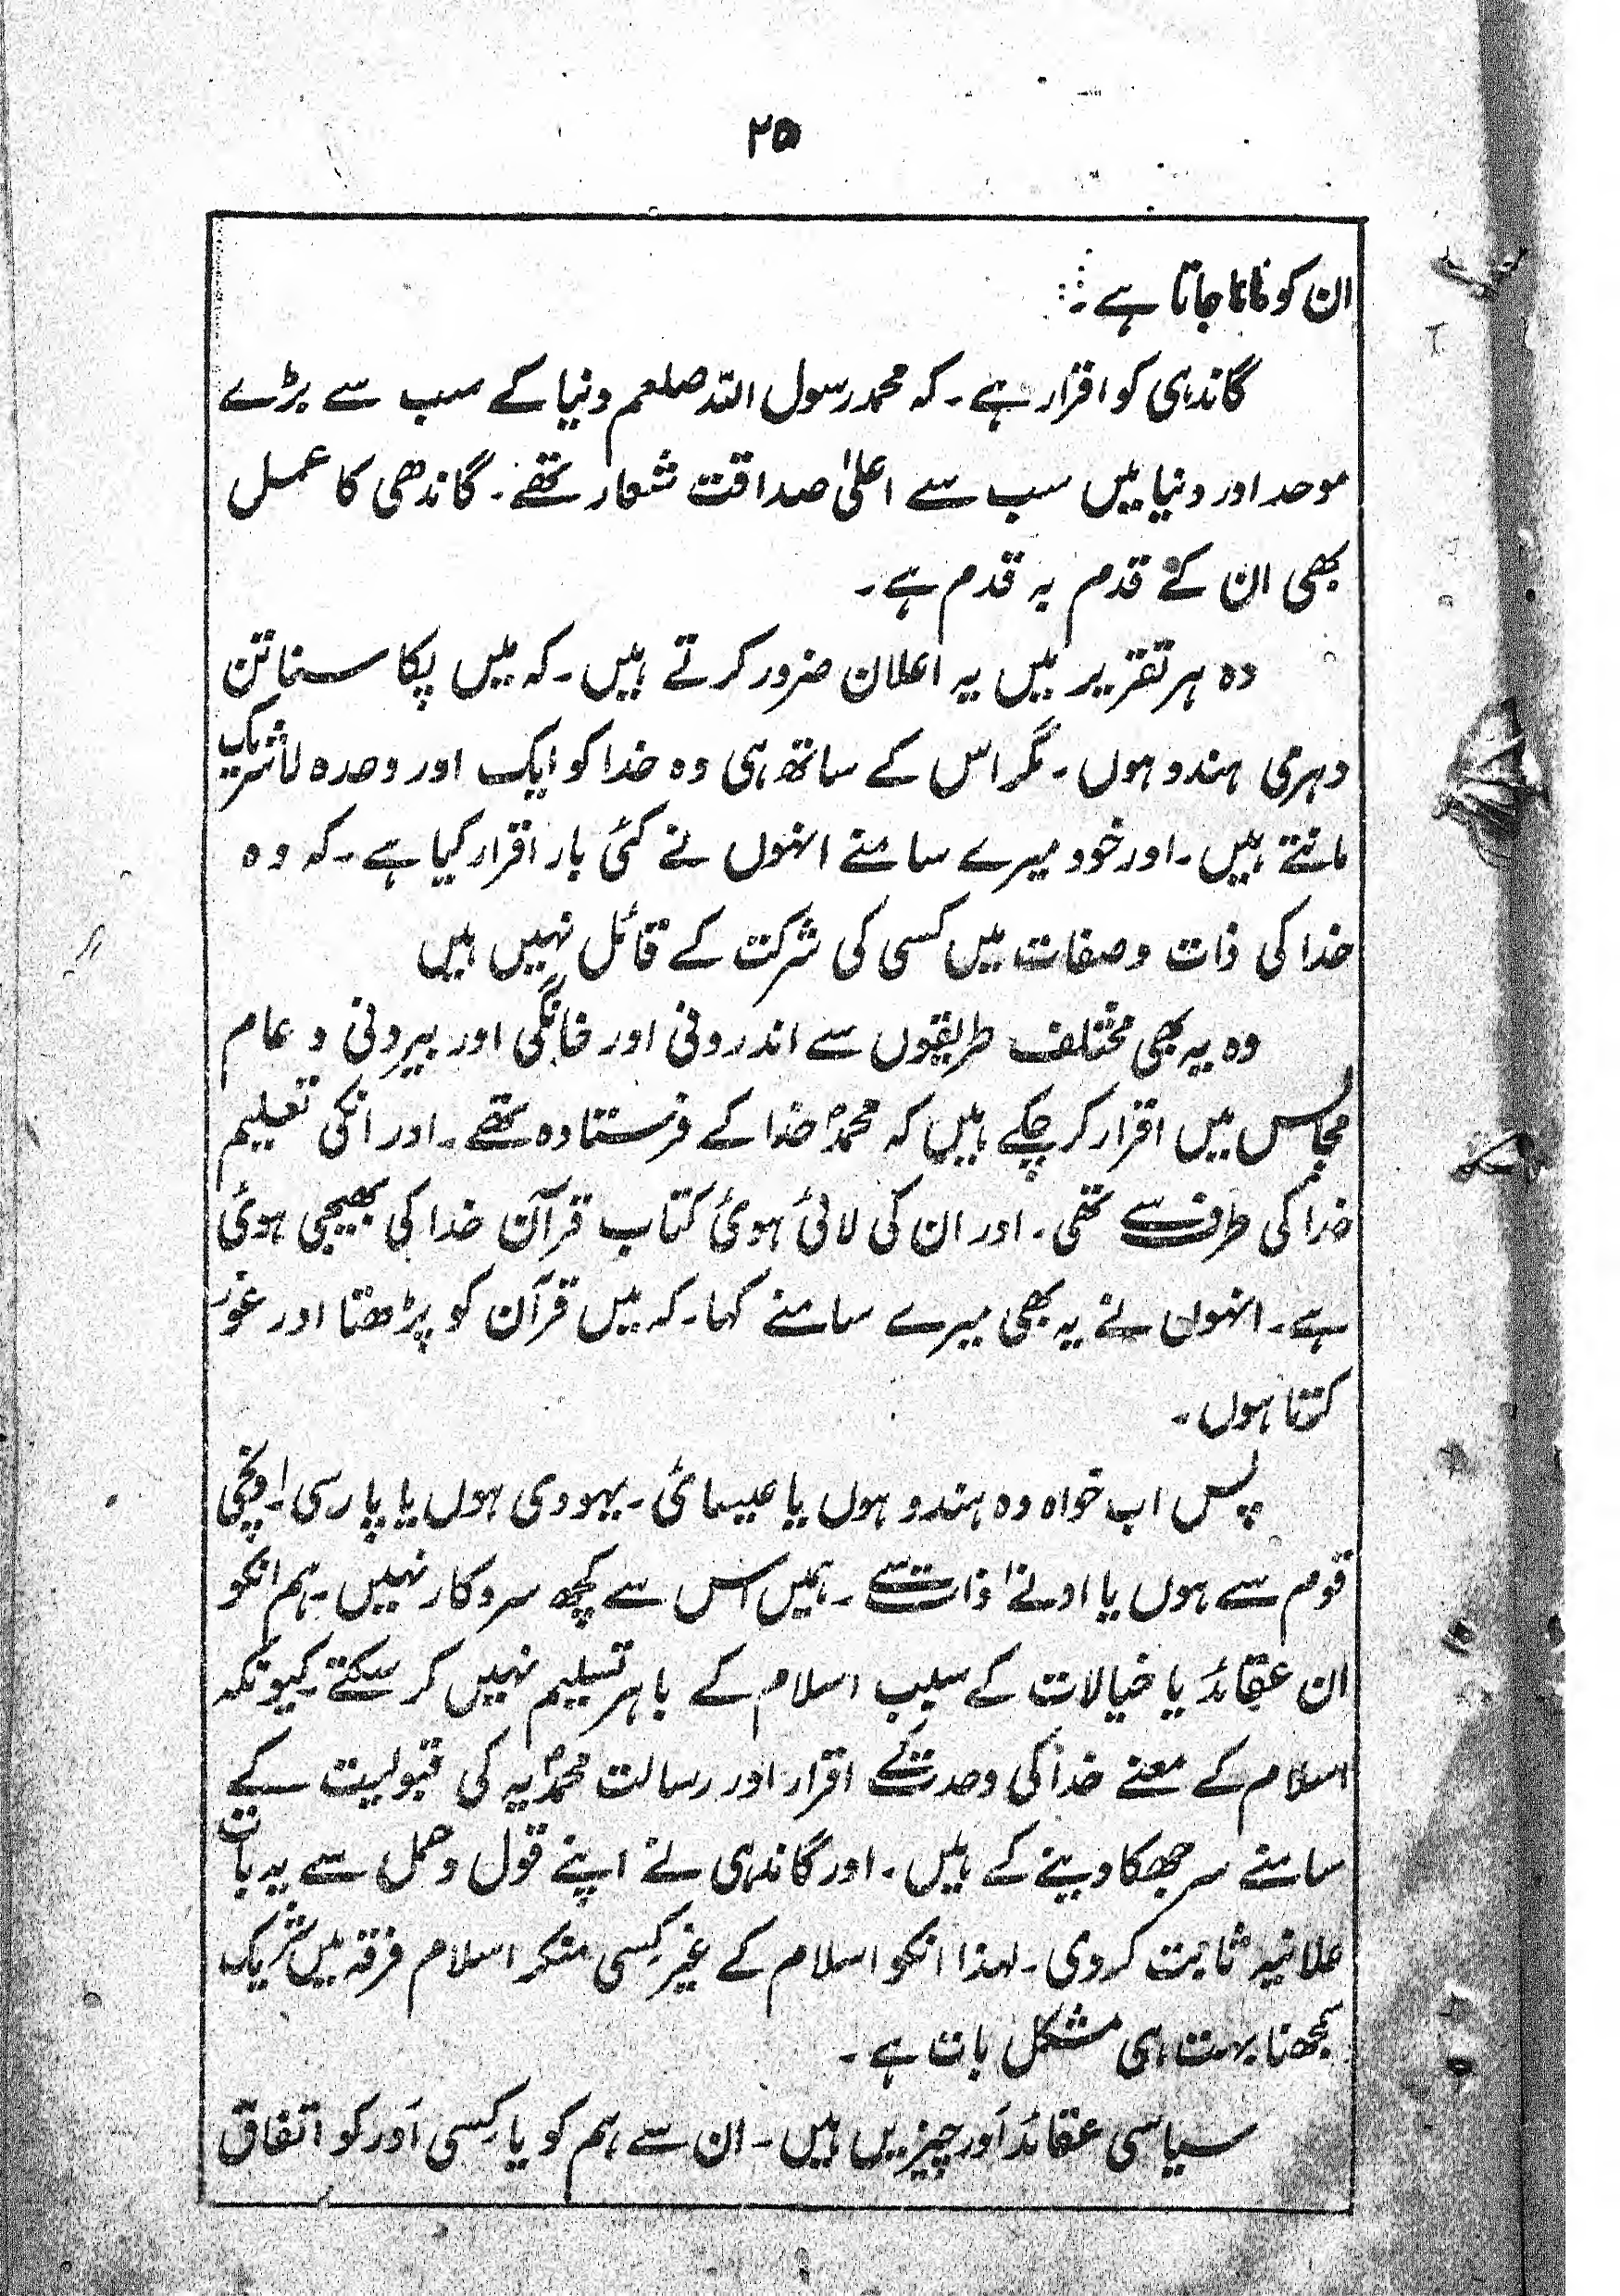 ۲۵
ان کو مانا جاتا ہے۔
گاندہی کو اقرار ہے۔ کہ محمد رسول اللہ صلعم دنیا کے سب سے بڑے
موحد اور دنیا میں سب سے اعلیٰ صداقت شعار تھے۔ گاندھی کا عمل
بھی ان کے قدم بہ قدم ہے۔
وہ ہر تقریر میں یہ اعلان ضرور کرتے ہیں۔ کہ میں پکا سناتن
دہرمی ہندو ہوں۔ مگر اس کے ساتھ ہی وہ خدا کو ایک اور وحدہ لاشریک
مانتے ہیں۔ اور خود میرے سامنے انہوں نے کئی بار اقرار کیا ہے۔ کہ وہ
خدا کی ذات و صفات میں کسی کی شرکت کے قائل نہیں ہیں
وہ یہ بھی مختلف طریقوں سے اندرونی اور خانگی اور بیرونی و عام
مجالس میں اقرار کر چکے ہیں کہ محمدؐ خدا کے فرستادہ تھے۔ اور انکی تعلیم
خدا کی طرف سے تھی۔ اور ان کی لائی ہوئی کتاب قرآن خدا کی بھیجی ہوئی
ہے۔ انہوں نے یہ بھی میرے سامنے کہا۔ کہ میں قرآن کو پڑھتا اور غور
کرتا ہوں۔
پس اب خواہ وہ ہندو ہوں یا عیسائی۔ یہودی ہوں یا پارسی۔ اونچی
قوم سے ہوں یا ادنےٰ ذات سے۔ ہمیں اس سے کچھ سروکار نہیں۔ ہم انکو
ان عقائد یا خیالات کے سبب اسلام کے باہر تسلیم نہیں کر سکتے۔ کیونکہ
اسلام کے معنے خدا کی وحدت کے اقرار اور رسالت محمدؐیہ کی قبولیت کے
سامنے سر جھکا دینے کے ہیں۔ اور گاندہی نے اپنے قول و عمل سے یہ بات
علانیہ ثابت کر دی۔ لہذا انکو اسلام کے غیر کسی منکر اسلام فرقہ میں شریک
سمجھنا بہت ہی مشکل بات ہے۔
سیاسی عقائد اَور چیزیں ہیں۔ ان سے ہم کو یا کسی اَور کو اتفاق